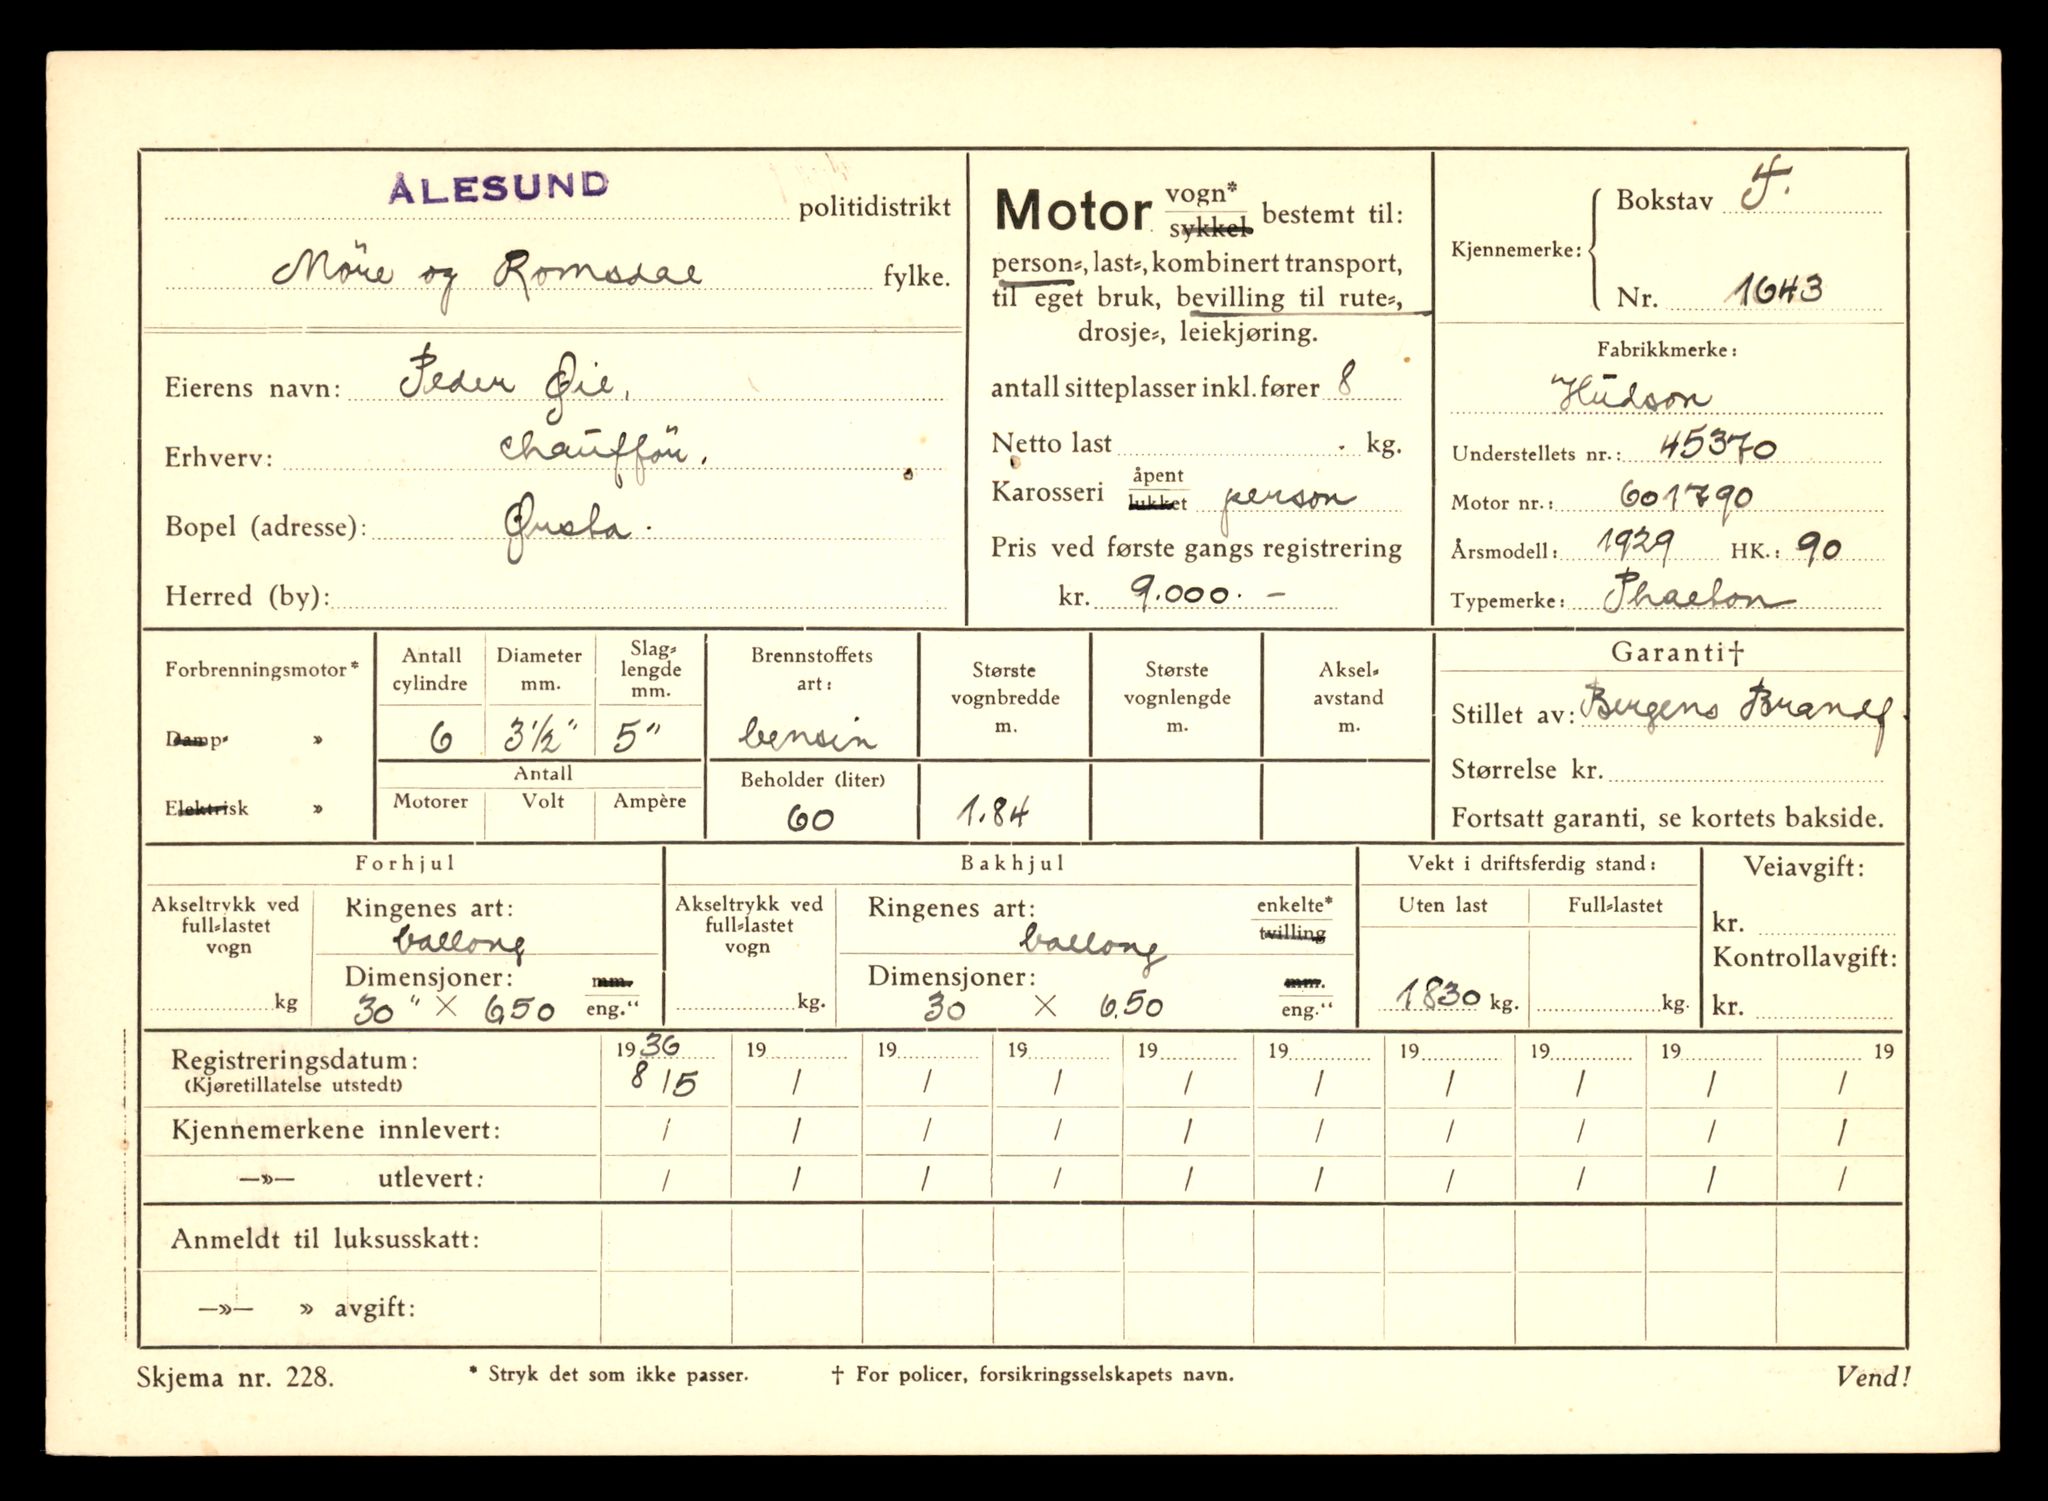 ÅLESUND politidistrikt
Möre og Romsdal fylke.
Eierens navn: Peder Øie.
Erhverv: chaufför.
Bopel (adresse): Ørsta.
Herred (by):
Motor vogn* sykkel bestemt til:
person-, last-, kombinert transport,
til eget bruk, bevilling til rute-,
drosje-, leiekjøring.
antall sitteplasser inkl. fører 8
Netto last kg.
Karosseri åpent lukket person
Pris ved første gangs registrering
kr. 9.000.-
Kjennemerke:
Bokstav
Nr. 1643
Fabrikkmerke:
Hudson
Understellets nr.: 45370
Motor nr.: 601790
Årsmodell: 1929 HK.: 90
Typemerke: Phaeton
Forbrenningsmotor*
Damp- »
Elektrisk »
Antall cylindre
6
Diameter mm.
3½"
Slag-
lengde
mm.
5"
Antall
Motorer Volt Ampère
Brennstoffets
art:
bensin
Beholder (liter)
60
Største
vognbredde
m.
1.84
Største
vognlengde
m.
Aksel-
avstand
m.
Garanti†
Stillet av: Bergens Brandf.
Størrelse kr.
Fortsatt garanti, se kortets bakside.
Forhjul
Akseltrykk ved
full-lastet
vogn
kg
Ringenes art:
ballong
Dimensjoner: mm.
30" × 6,50 eng."
Bakhjul
Akseltrykk ved
full-lastet
vogn
kg.
Ringenes art: enkelte*
ballong tvilling
Dimensjoner: mm.
30 × 6,50 eng."
Vekt i driftsferdig stand:
Uten last Full-lastet
1830 kg. kg.
Veiavgift:
kr.
Kontrollavgift:
kr.
Registreringsdatum: 1936 19 19 19 19 19 19 19 19 19
(Kjøretillatelse utstedt) 8/5 / / / / / / / / /
Kjennemerkene innlevert: / / / / / / / / / /
—»— utlevert: / / / / / / / / / /
Anmeldt til luksusskatt:
—»— » avgift:
Skjema nr. 228. * Stryk det som ikke passer. † For policer, forsikringsselskapets navn. Vend!